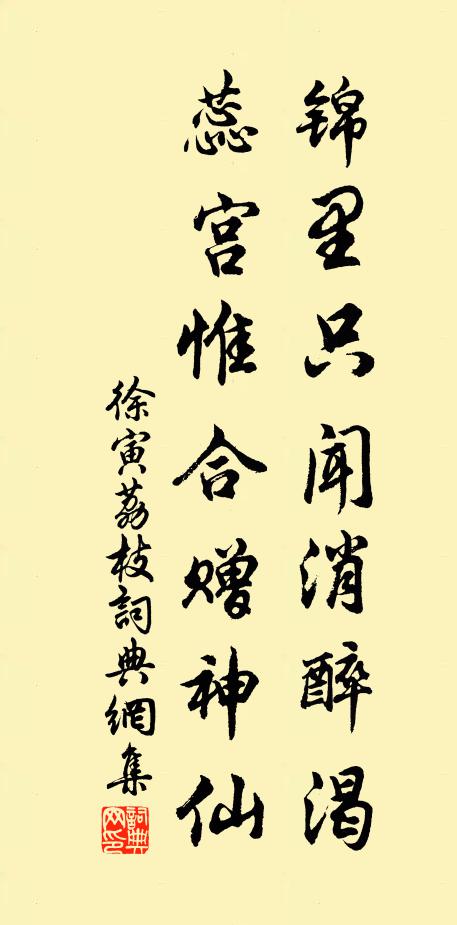 锦里只闻消醉渴
蕊宫惟合赠神仙
徐寅荔枝詞典網集
詞典網印